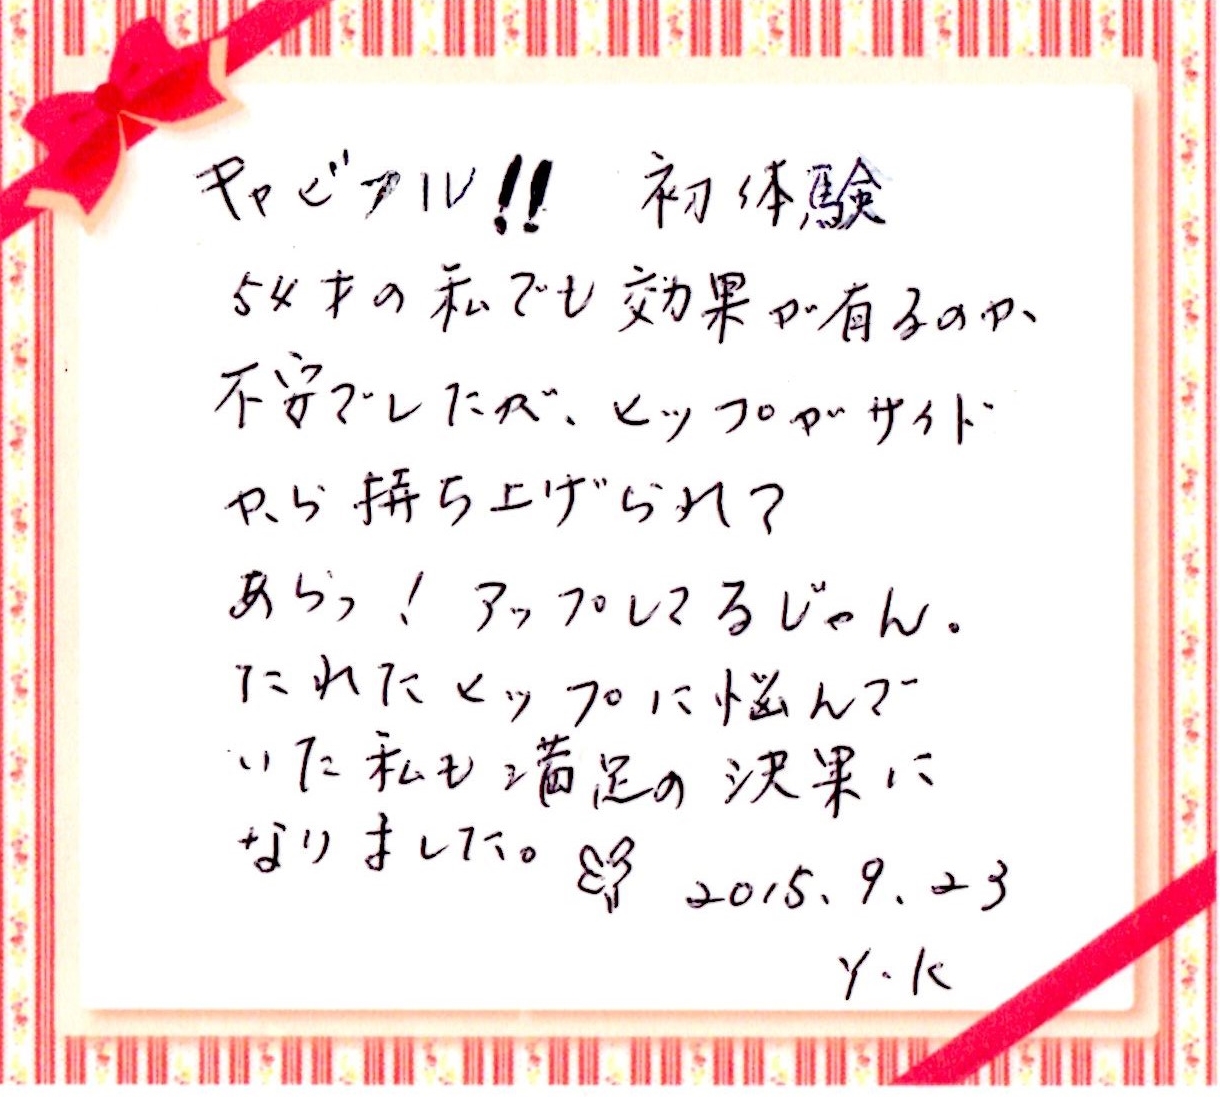 キャビアル!! 初体験
54才の私でも効果が有るのか、
不安でしたが、ヒップがサイド
から持ち上げられて
あらっ! アップしてるじゃん。
たれたヒップに悩んで
いた私も満足の決果に
なりました。
2015.9.23
Y.K